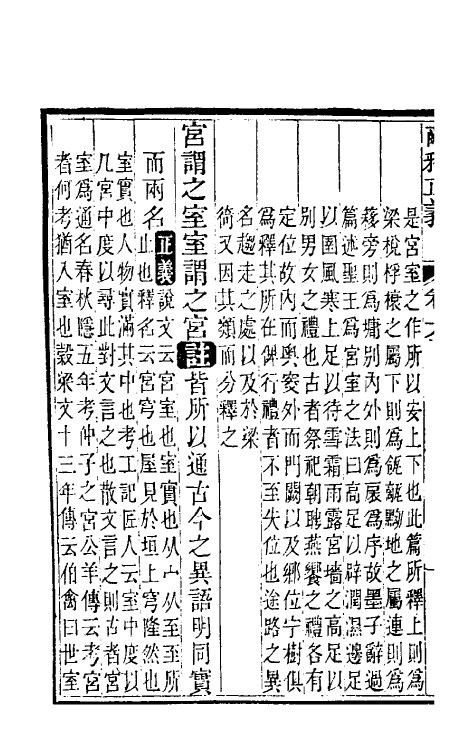 爾雅正義
是宮室之作所以安上下也此篇所釋上則爲
梁梲桴榱之屬下則爲瓴甋黝地之屬連則爲
簃旁則爲墉別內外則爲扆爲序故墨子辭過
篇述聖王爲宮室之法曰高足以辟潤濕邊足
以圉風寒上足以待雪霜雨露宮墻之高足以
別男女之禮也古者祭祀朝聘燕饗之禮各有
定位故內而奧窔外而門闑以及鄉位宁樹俱
爲釋其所在俾行禮者不至失位也途路之異
名趨走之處以及於梁
徛又因其類而分釋之
宮謂之室室謂之宮註皆所以通古今之異語明同實
而兩名正義說文云宮室也室實也从宀从至至所
止也釋名云宮穹也屋見於垣上穹隆然也
室實也人物實滿其中也考工記匠人云室中度以
几宮中度以尋此對文言之也散文言之則古者宮
室爲通名春秋隱五年考仲子之宮公羊傳云考宮
者何考猶入室也穀梁文十三年傳云伯禽曰世室